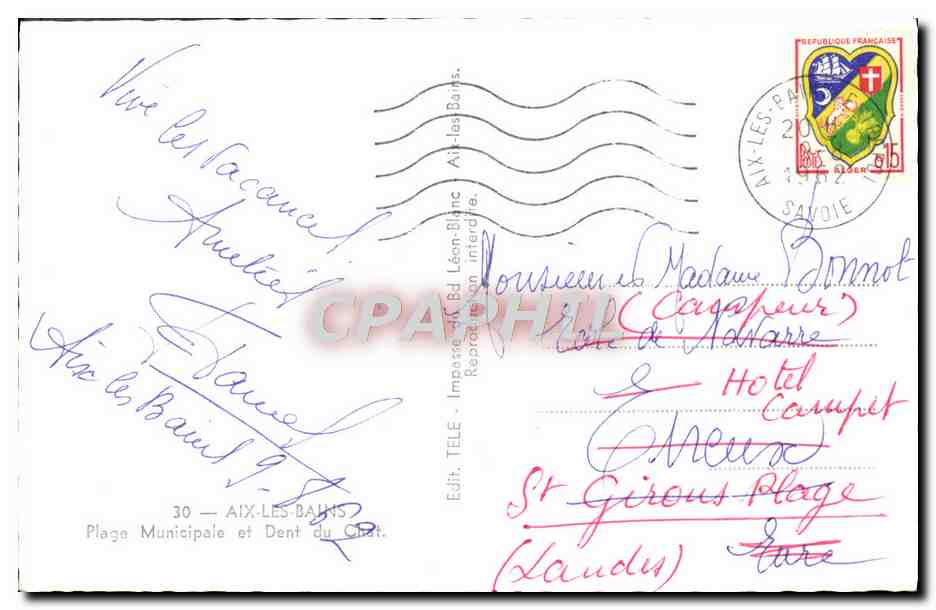 Vive les Vacances
Amitiés
Daniel
Aix les Bains 9-8-62
30 — AIX-LES-BAINS
Plage Municipale et Dent du Chat.
Edit. TELE - Impasse du Bd Léon-Blanc - Aix-les-Bains.
Reproduction interdite.
CPAPHIL
REPUBLIQUE FRANÇAISE
POSTES
0,15
ALGER
AIX-LES-BAINS
1962
SAVOIE
Monsieur et Madame Bonnot
(Campeur)
de Navarre
Hotel
Campet
Evreux
St Girons Plage
Eure
(Landes)